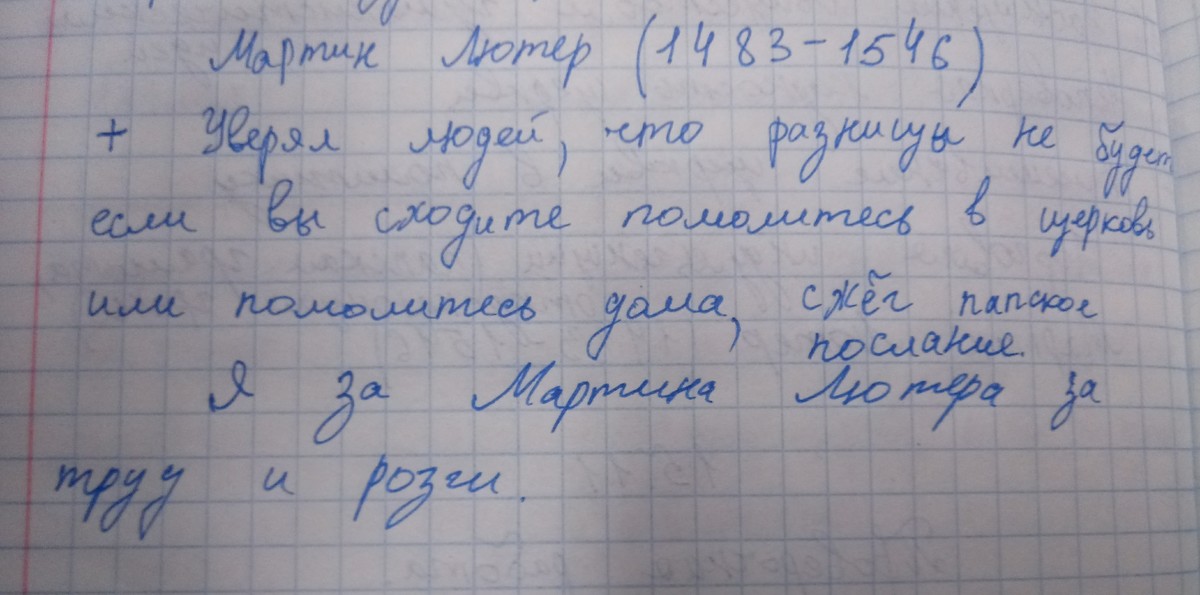 Мартин Лютер (1483-1546)
+ Уверял людей, что разницы не будет
если вы сходите помолитесь в церковь
или помолитесь дома, сжёг папское
послание.
Я за Мартина Лютера за
труд и розги.